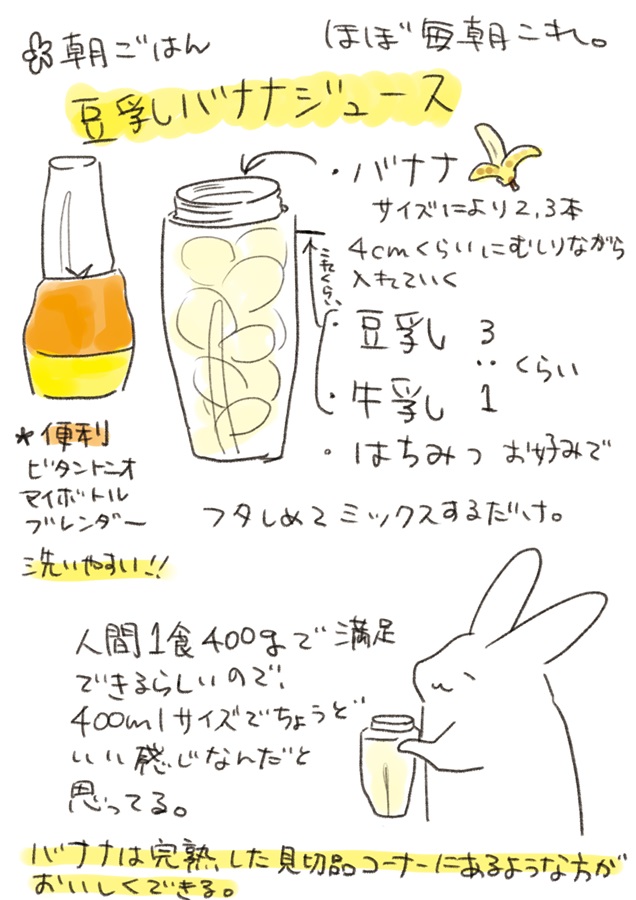 朝ごはん
ほぼ毎朝これ。
豆乳バナナジュース
・バナナ
サイズにより2,3本
4cmくらいにむしりながら
入れていく
これくらい
・豆乳 3
：くらい
・牛乳 1
・はちみつ お好みで
*便利
ビタントニオ
マイボトル
ブレンダー
洗いやすい!!
フタしめてミックスするだけ。
人間1食400gまで満足
できるらしいので、
400mlサイズでちょうど
いい感じなんだと
思ってる。
バナナは完熟した見切品コーナーにあるような方が
おいしくできる。